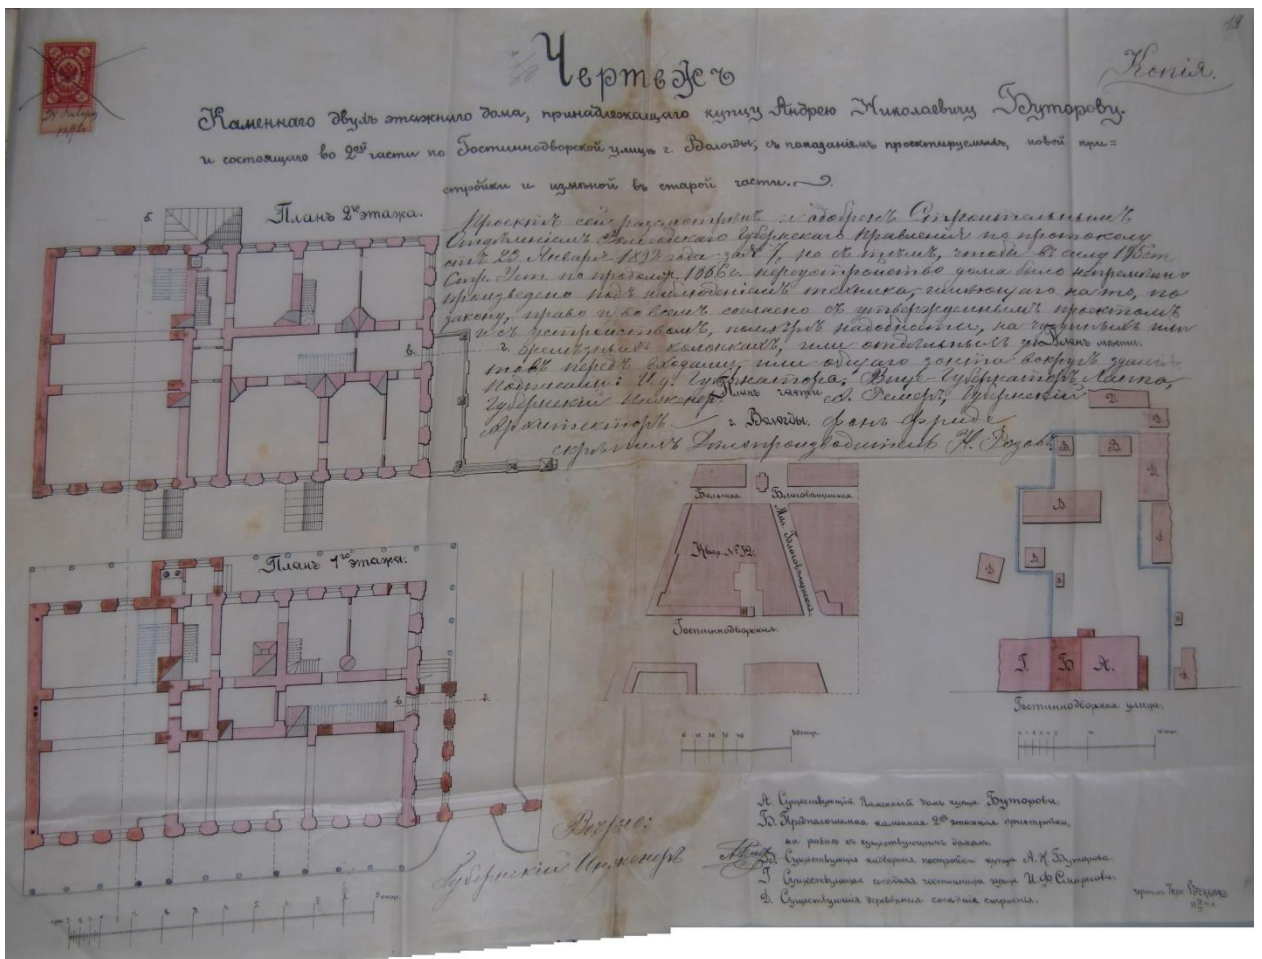 19
Копія.
Чертежъ
Каменнаго двухъ этажнаго дома, принадлежащаго купцу Андрею Николаевичу Буторову.
и состоящаго во 2ой части по Гостиннодворской улицѣ г. Вологды, съ показаніемъ проектируемыхъ, новой при=
стройки и измѣной въ старой части.
Планъ 2го этажа.
Проектъ сей разсмотренъ и одобренъ Строительнымъ
Отдѣленіемъ Вологодскаго Губернскаго Правленія по протоколу
отъ 23 Января 1892 года за № 7, но съ тѣмъ, чтобы въ силу 195 ст.
Стр. Уст. по продолж. 1886 г. переустройство дома было непремѣнно
произведено подъ наблюденіемъ техника, имѣющаго на то, по
закону, право и во всемъ согласно съ утвержденнымъ проектомъ
и съ устройствомъ, надобности, на чугунныхъ или
желѣзныхъ колонкахъ, или отдѣльныхъ
передъ входами, или общаго зонта вокругъ зданія.
Планъ мѣста.
Подписали: И. д. Губернатора, Вице-Губернаторъ Лаппо,
Губернскій Инженеръ А. Ремеръ, Губернскій
Архитекторъ фонъ-Фриде
скрѣпилъ Дѣлопроизводитель Н. Розовъ.
Планъ части
г. Вологды.
Большая Благовѣщенская
Мал. Благовѣщенская
Квар. № 52.
Гостиннодворская.
Д
Д
Г. Б А.
Гостиннодворская улица.
Планъ 1го этажа.
Вѣрно:
Губернскій Инженеръ
А. Существующій каменный домъ купца Буторова.
Б. Предполагаемая каменная 2хъ этажная пристройка,
на равнѣ съ существующимъ домомъ.
В. Существующія надворныя постройки купца А. Н. Буторова.
Г. Существующая сосѣдняя гостинница купца И. Ф.
Д. Существующія деревянныя сосѣднія строенія.